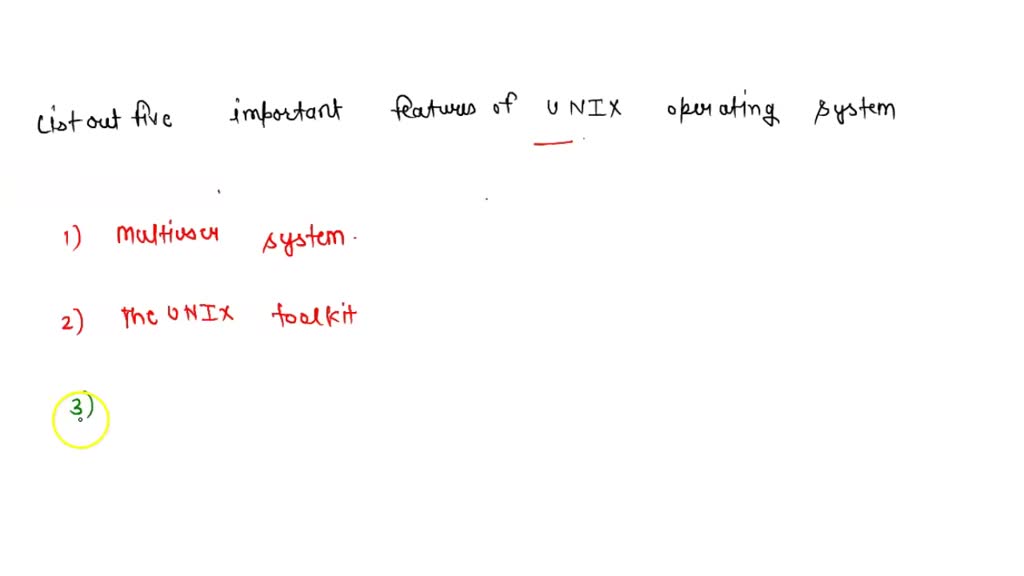 List out five important features of UNIX operating system
1) Multiuser system.
2) The UNIX toolkit
3)